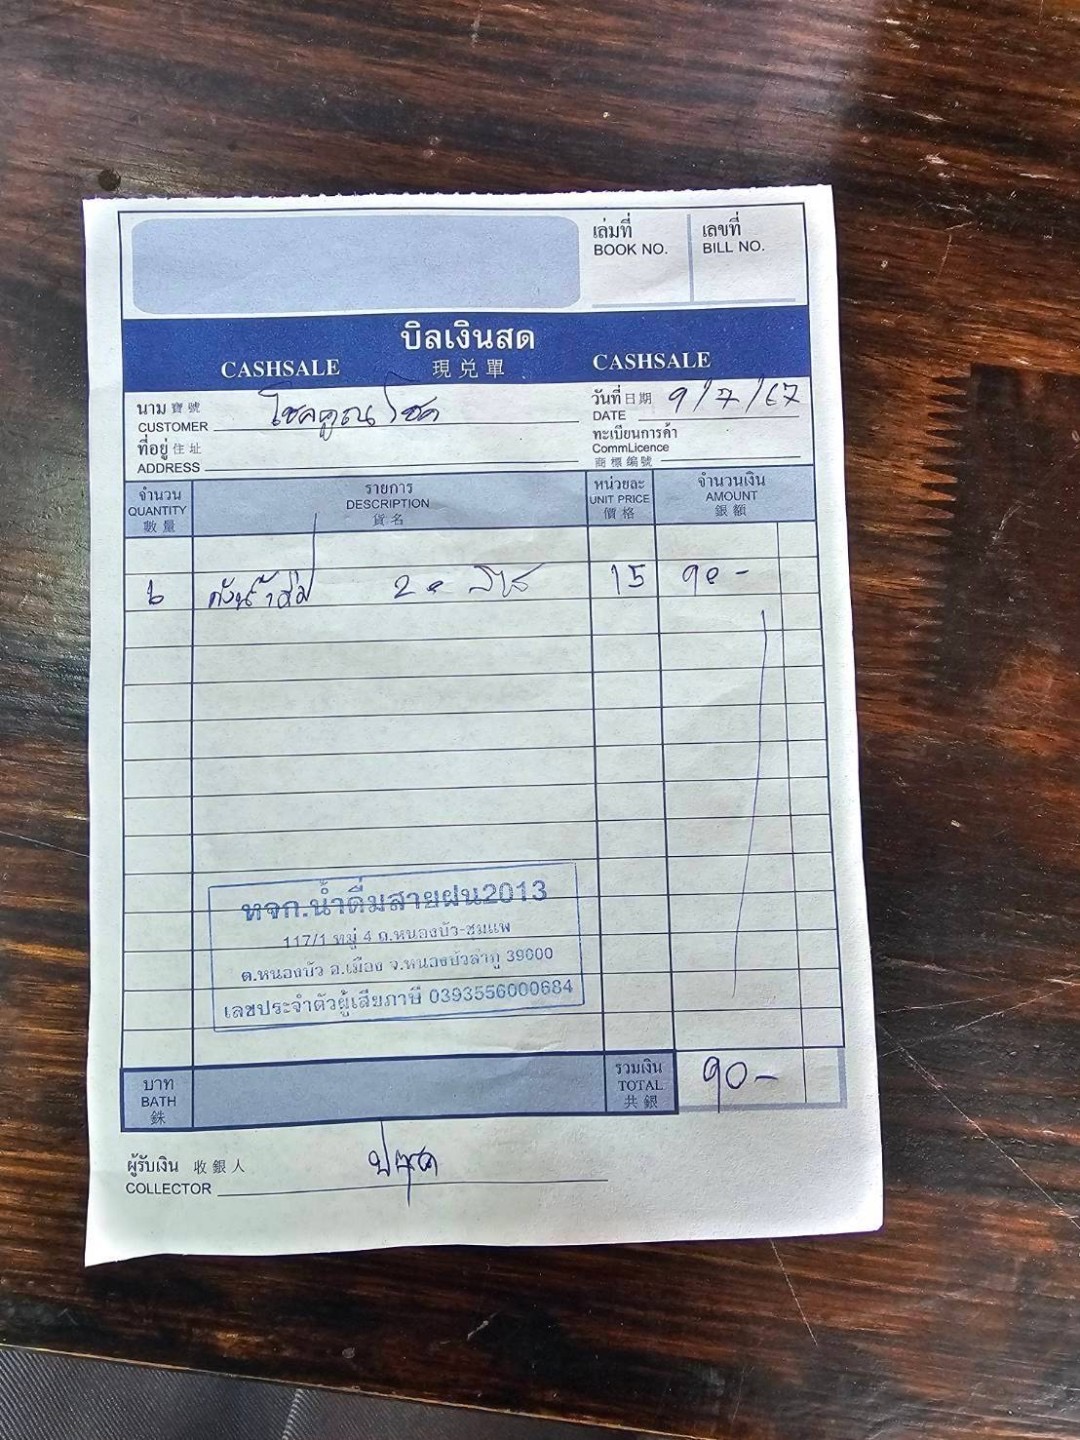 เล่มที่ เลขที่
BOOK NO. BILL NO.
บิลเงินสด
CASHSALE 現兑單 CASHSALE
นาม 寶號 โชคคูณโชค วันที่ 日期 9/7/67
CUSTOMER DATE
ที่อยู่ 住址 ทะเบียนการค้า
ADDRESS CommLicence
商標编號
จำนวน รายการ หน่วยละ จำนวนเงิน
QUANTITY DESCRIPTION UNIT PRICE AMOUNT
數量 貨名 價格 銀額
6 ถังน้ำดื่ม 20 ลิตร 15 90-
หจก.น้ำดื่มสายฝน2013
117/1 หมู่ 4 ถ.หนองบัว-ชุมแพ
ต.หนองบัว อ.เมือง จ.หนองบัวลำภู 39000
เลขประจำตัวผู้เสียภาษี 0393556000684
บาท รวมเงิน 90-
BATH TOTAL
銖 共銀
ผู้รับเงิน 收銀人
COLLECTOR